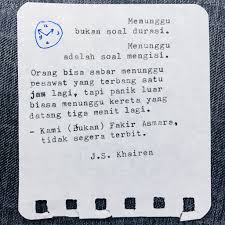 Menunggu
bukan soal durasi.
Menunggu
adalah soal mengisi.
Orang bisa sabar menunggu
pesawat yang terbang satu
jam lagi, tapi panik luar
biasa menunggu kereta yang
datang tiga menit lagi.
- Kami (Bukan) Fakir Asmara,
tidak segera terbit.
J.S. Khairen